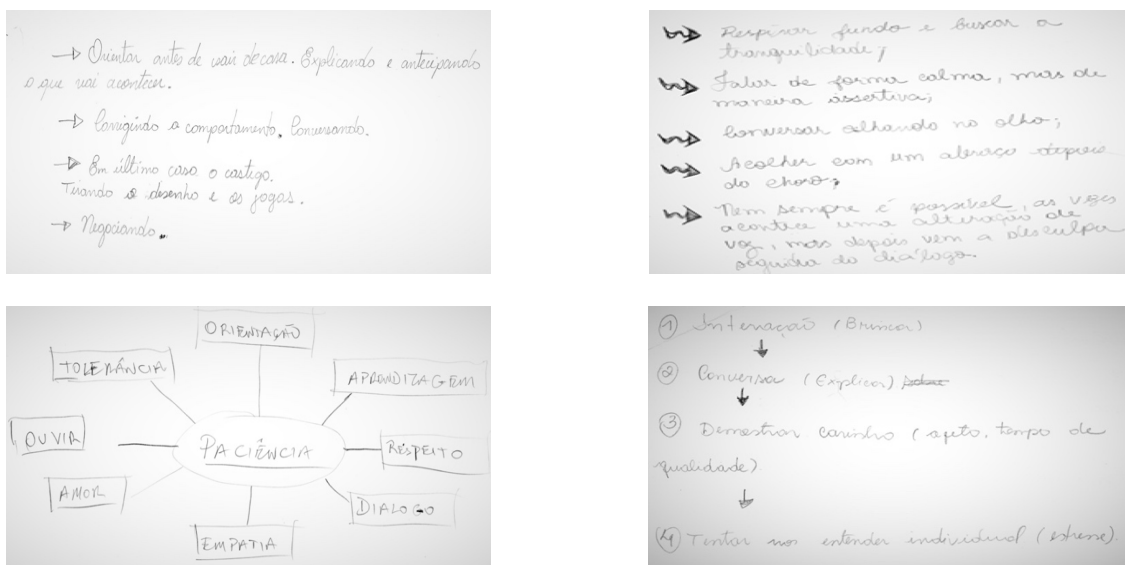 → Orientar antes de sair de casa. Explicando e antecipando
o que vai acontecer.
→ Corrigindo o comportamento. Conversando.
→ Em último caso o castigo.
Tirando o desenho e os jogos.
→ Negociando.
Respirar fundo e buscar a
tranquilidade;
Falar de forma calma, mas de
maneira assertiva;
Conversar olhando no olho;
Acolher com um abraço depois
do choro;
Nem sempre é possível, as vezes
acontece uma alteração de
voz, mas depois vem a desculpa
seguida do diálogo.
ORIENTAÇÃO
TOLERÂNCIA
APRENDIZAGEM
OUVIR
PACIÊNCIA
RESPEITO
AMOR
DIALOGO
EMPATIA
① Interação (Brincar)
② Conversa (Explicar)
③ Demostrar carinho (afeto, tempo de
qualidade).
④ Tentar nos entender individual (estresse).